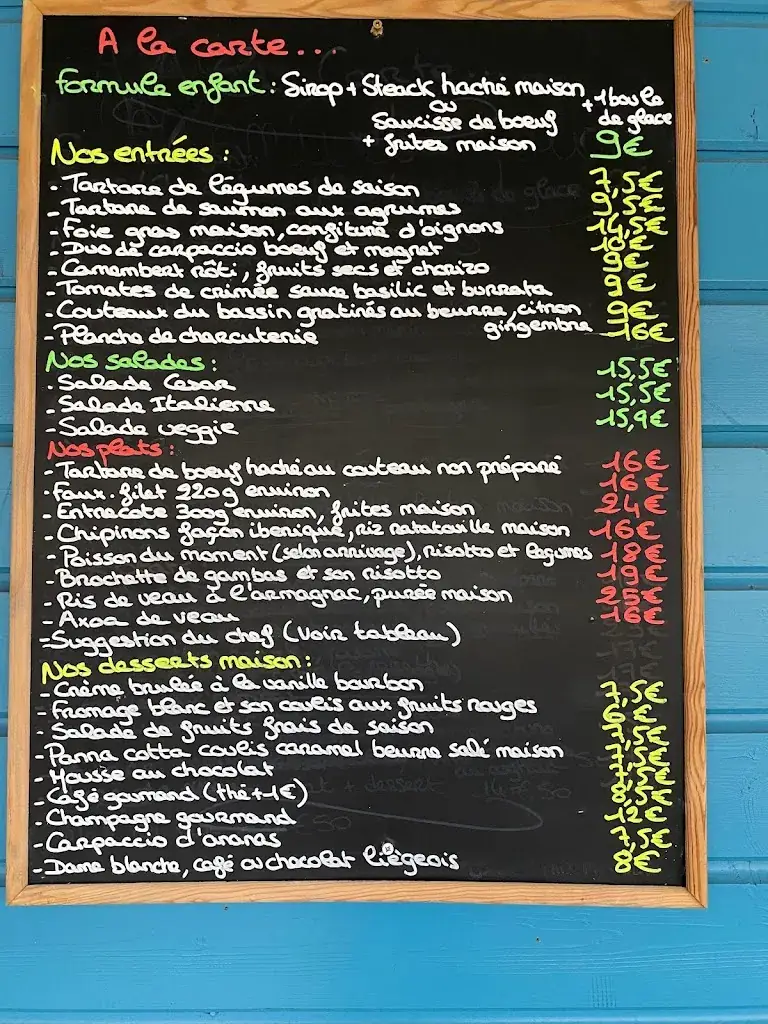 A la carte...
Formule enfant : Sirop + Steack haché maison + 1 boule
ou de glace
Saucisse de boeuf
+ frites maison 9€
Nos entrées :
- Tartare de légumes de saison
- Tartare de saumon aux agrumes
- Foie gras maison, confiture d'oignons
- Duo de carpaccio boeuf et magret
- Camembert rôti, fruits secs et chorizo
- Tomates de crimée sauce basilic et burrata
- Couteaux du bassin gratinés au beurre, citron 9€
gingembre
- Planche de charcuterie 16€
Nos salades :
- Salade Cesar 15,5€
- Salade Italienne 15,5€
- Salade veggie 15,9€
Nos plats :
- Tartare de boeuf haché au couteau non préparé 16€
- Faux-filet 220g environ 16€
- Entrecôte 300g environ, frites maison 24€
- Chipirons façon iberique, riz ratatouille maison 16€
- Poisson du moment (selon arrivage), Risotto et légumes 18€
- Brochette de gambas et son risotto 19€
- Ris de veau à l'armagnac, purée maison 25€
- Axoa de veau 16€
- Suggestion du chef (Voir tableau)
Nos desserts maison :
- Crème brulée à la vanille bourbon
- Fromage blanc et son coulis aux fruits rouges
- Salade de fruits frais de saison
- Panna cotta coulis caramel beurre salé maison
- Mousse au chocolat
- Café gourmand (thé + 1€)
- Champagne gourmand
- Carpaccio d'ananas
- Dame blanche, café ou chocolat liégeois 8€